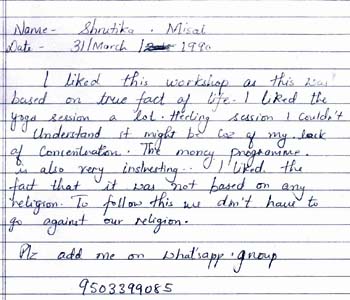 Name- Shrutika . Misal
Date - 31/March / 1990
I liked this workshop as this was
based on true fact of life. I liked the
yoga session a lot. Heeling session I couldn't
Understand it might be Coz of my lack
of Concentration. The money programme
is also very instresting.. I liked the
fact that it was not based on any
religion. To follow this we don't have to
go against our religion.
Plz add me on whatsapp.group
9503399085